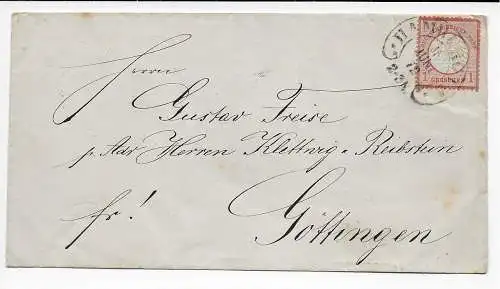 Herrn
Gustav Freise
p. Adr Herren Klettwig & Reibstein
fr!
Göttingen
1 GROSCHEN 1